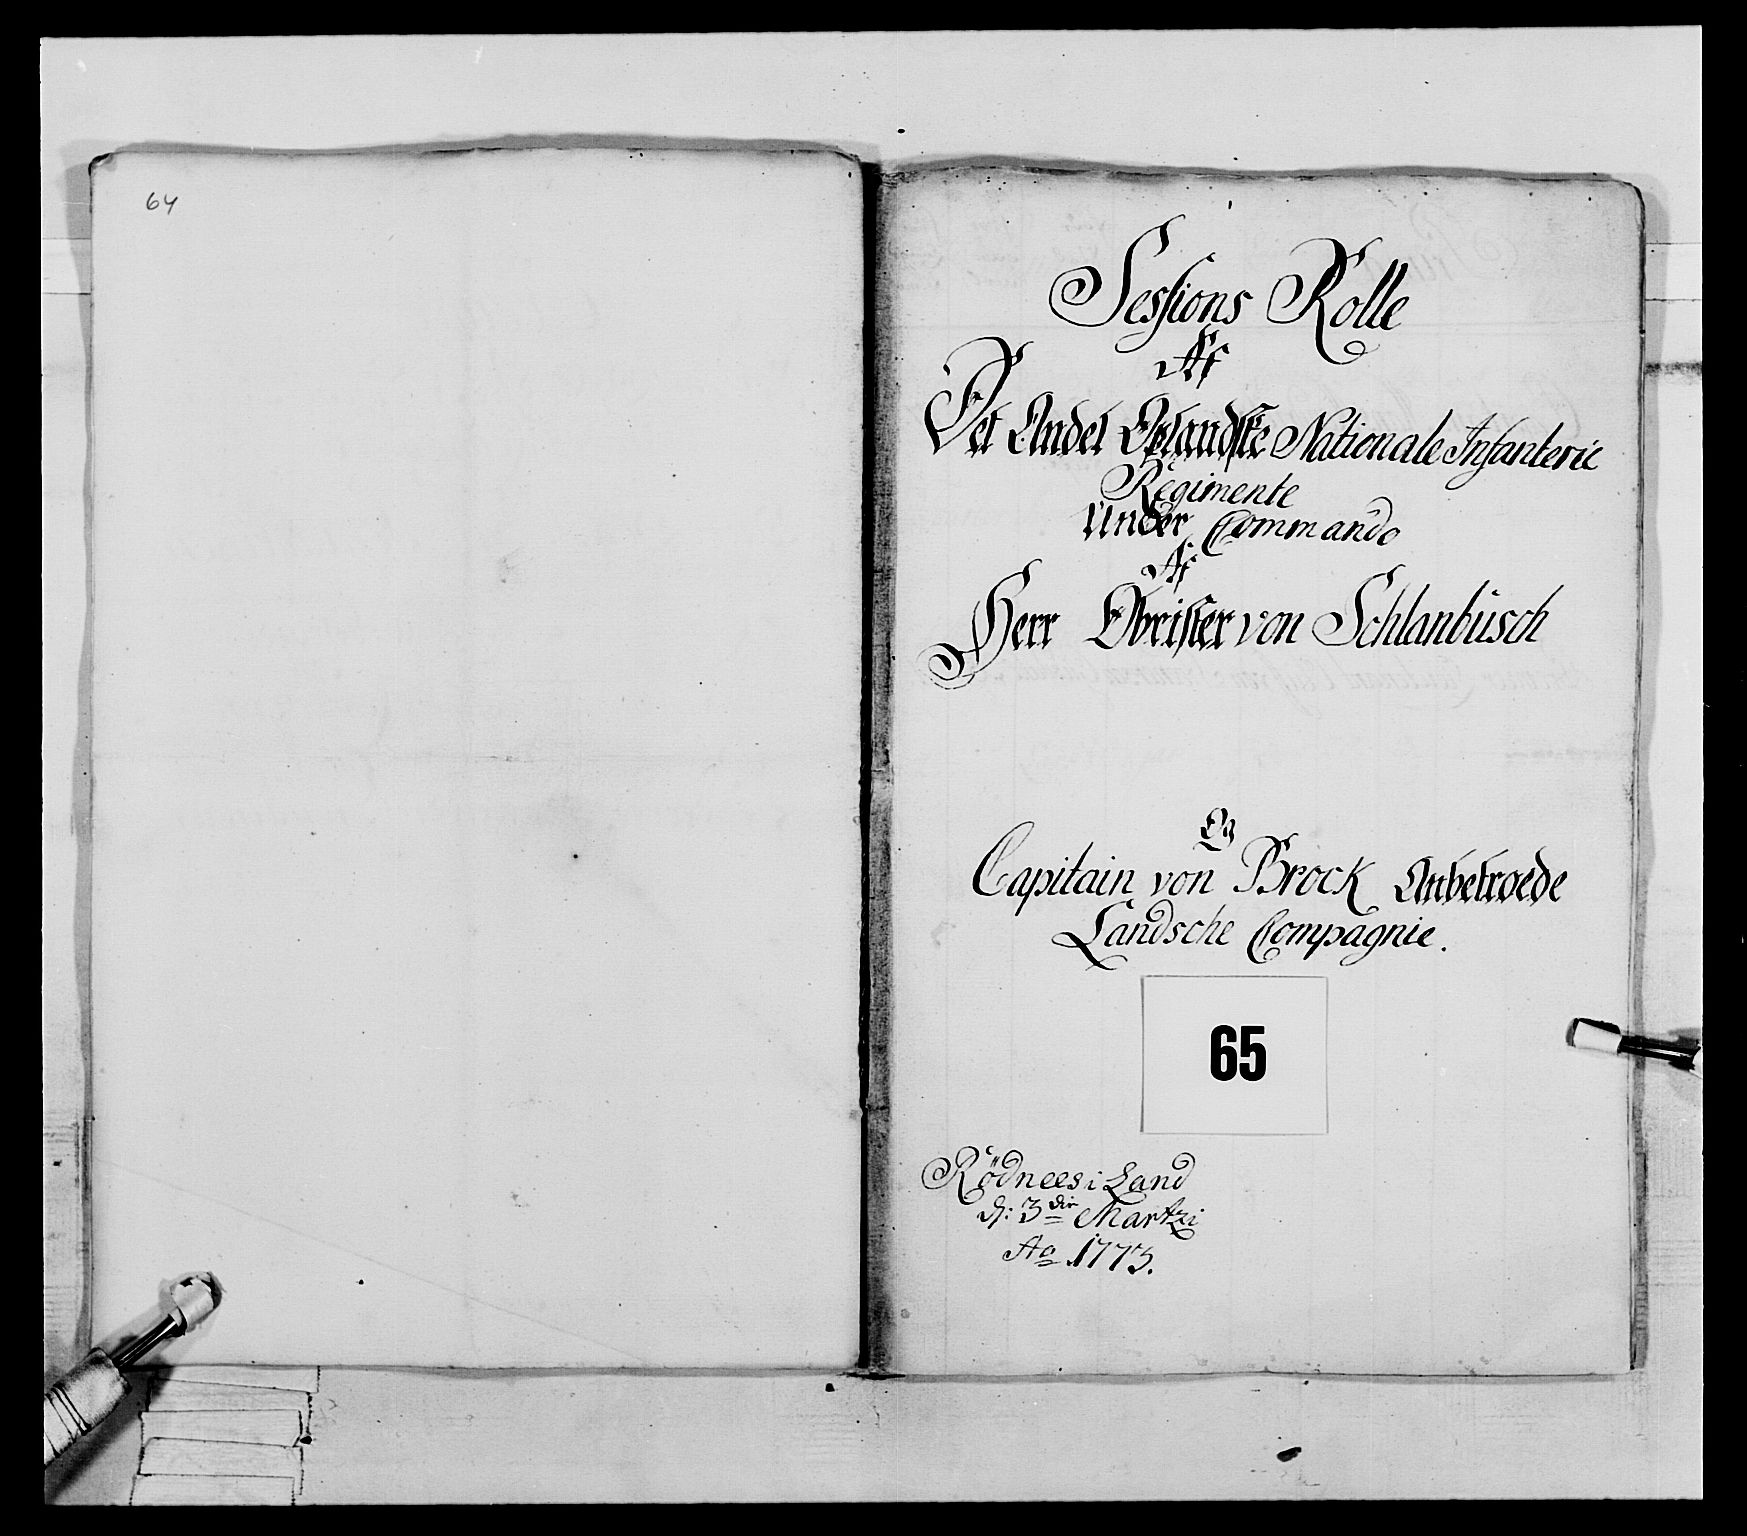 64
Sessions Rolle
Af
Det Andet Oplandske Nationale Infanterie
Regimente
Under Commando
Af
Herr Obrister von Schlanbüsch
Og
Capitain von Brock Anbetroede
Landsche Compagnie.
65
Rödnees i Land
d: 3die Martzi
Ao 1773.